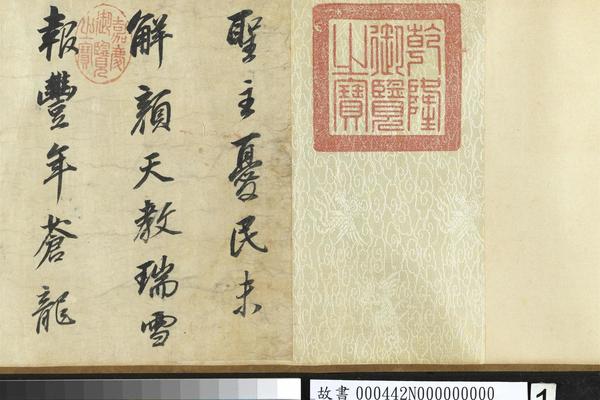 乾隆
御覽
之寶
聖主憂民未
解顏天教瑞雪
嘉慶
御覽
之寶
報豐年蒼龍
故書 000442N000000000
1